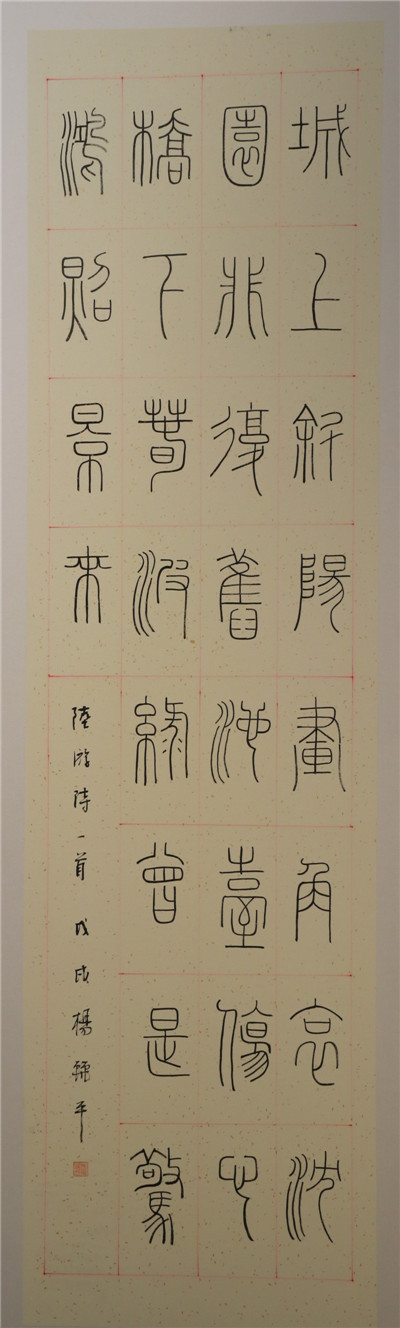 城上斜陽畫角哀沈
園非復舊池臺傷心
橋下春波綠曾是驚
鴻照景來
陸游詩一首 戊戌 楊 平